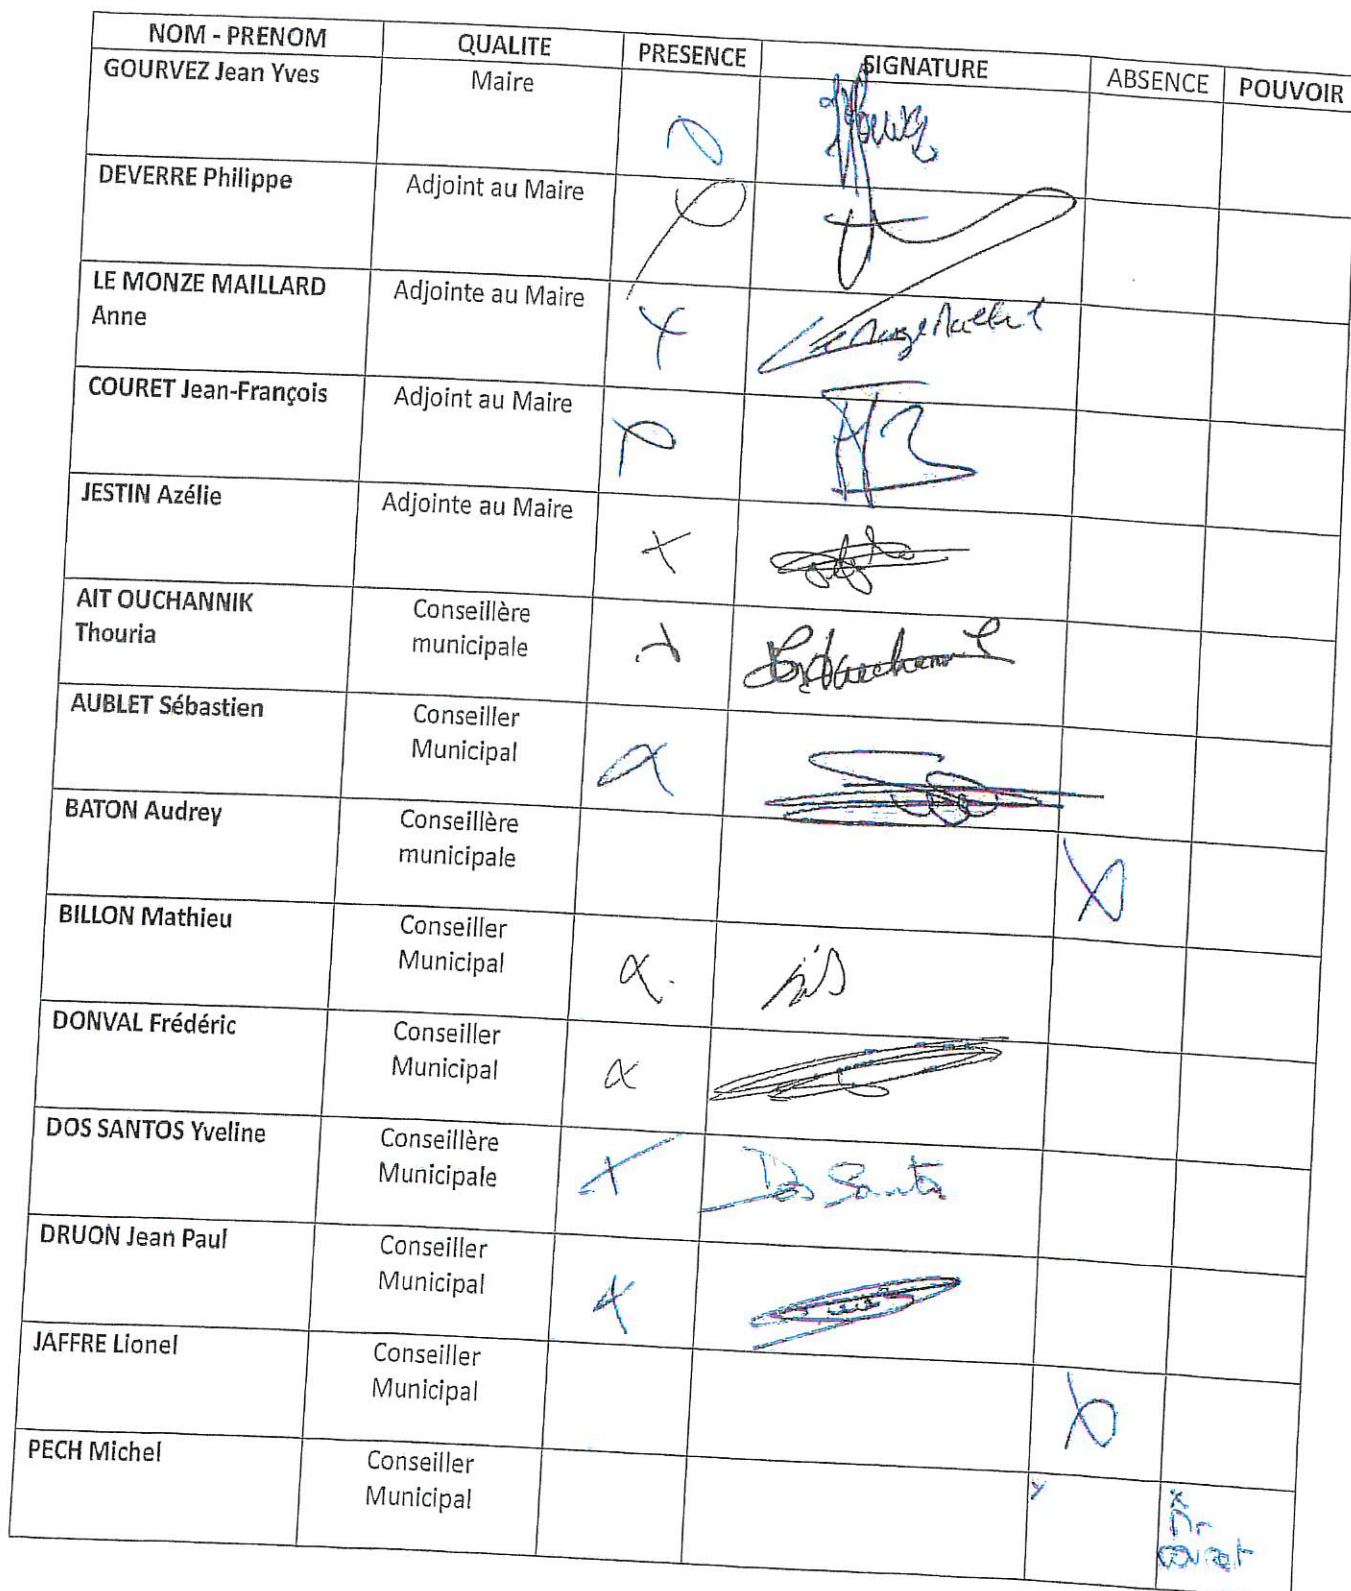 NOM - PRENOM QUALITE PRESENCE SIGNATURE ABSENCE POUVOIR
GOURVEZ Jean Yves Maire
DEVERRE Philippe Adjoint au Maire
LE MONZE MAILLARD Adjointe au Maire
Anne
COURET Jean-François Adjoint au Maire
JESTIN Azélie Adjointe au Maire
AIT OUCHANNIK Conseillère
Thouria municipale
AUBLET Sébastien Conseiller
Municipal
BATON Audrey Conseillère
municipale
BILLON Mathieu Conseiller
Municipal
DONVAL Frédéric Conseiller
Municipal
DOS SANTOS Yveline Conseillère
Municipale Dos Santos
DRUON Jean Paul Conseiller
Municipal
JAFFRE Lionel Conseiller
Municipal
PECH Michel Conseiller
Municipal
Mr
couret